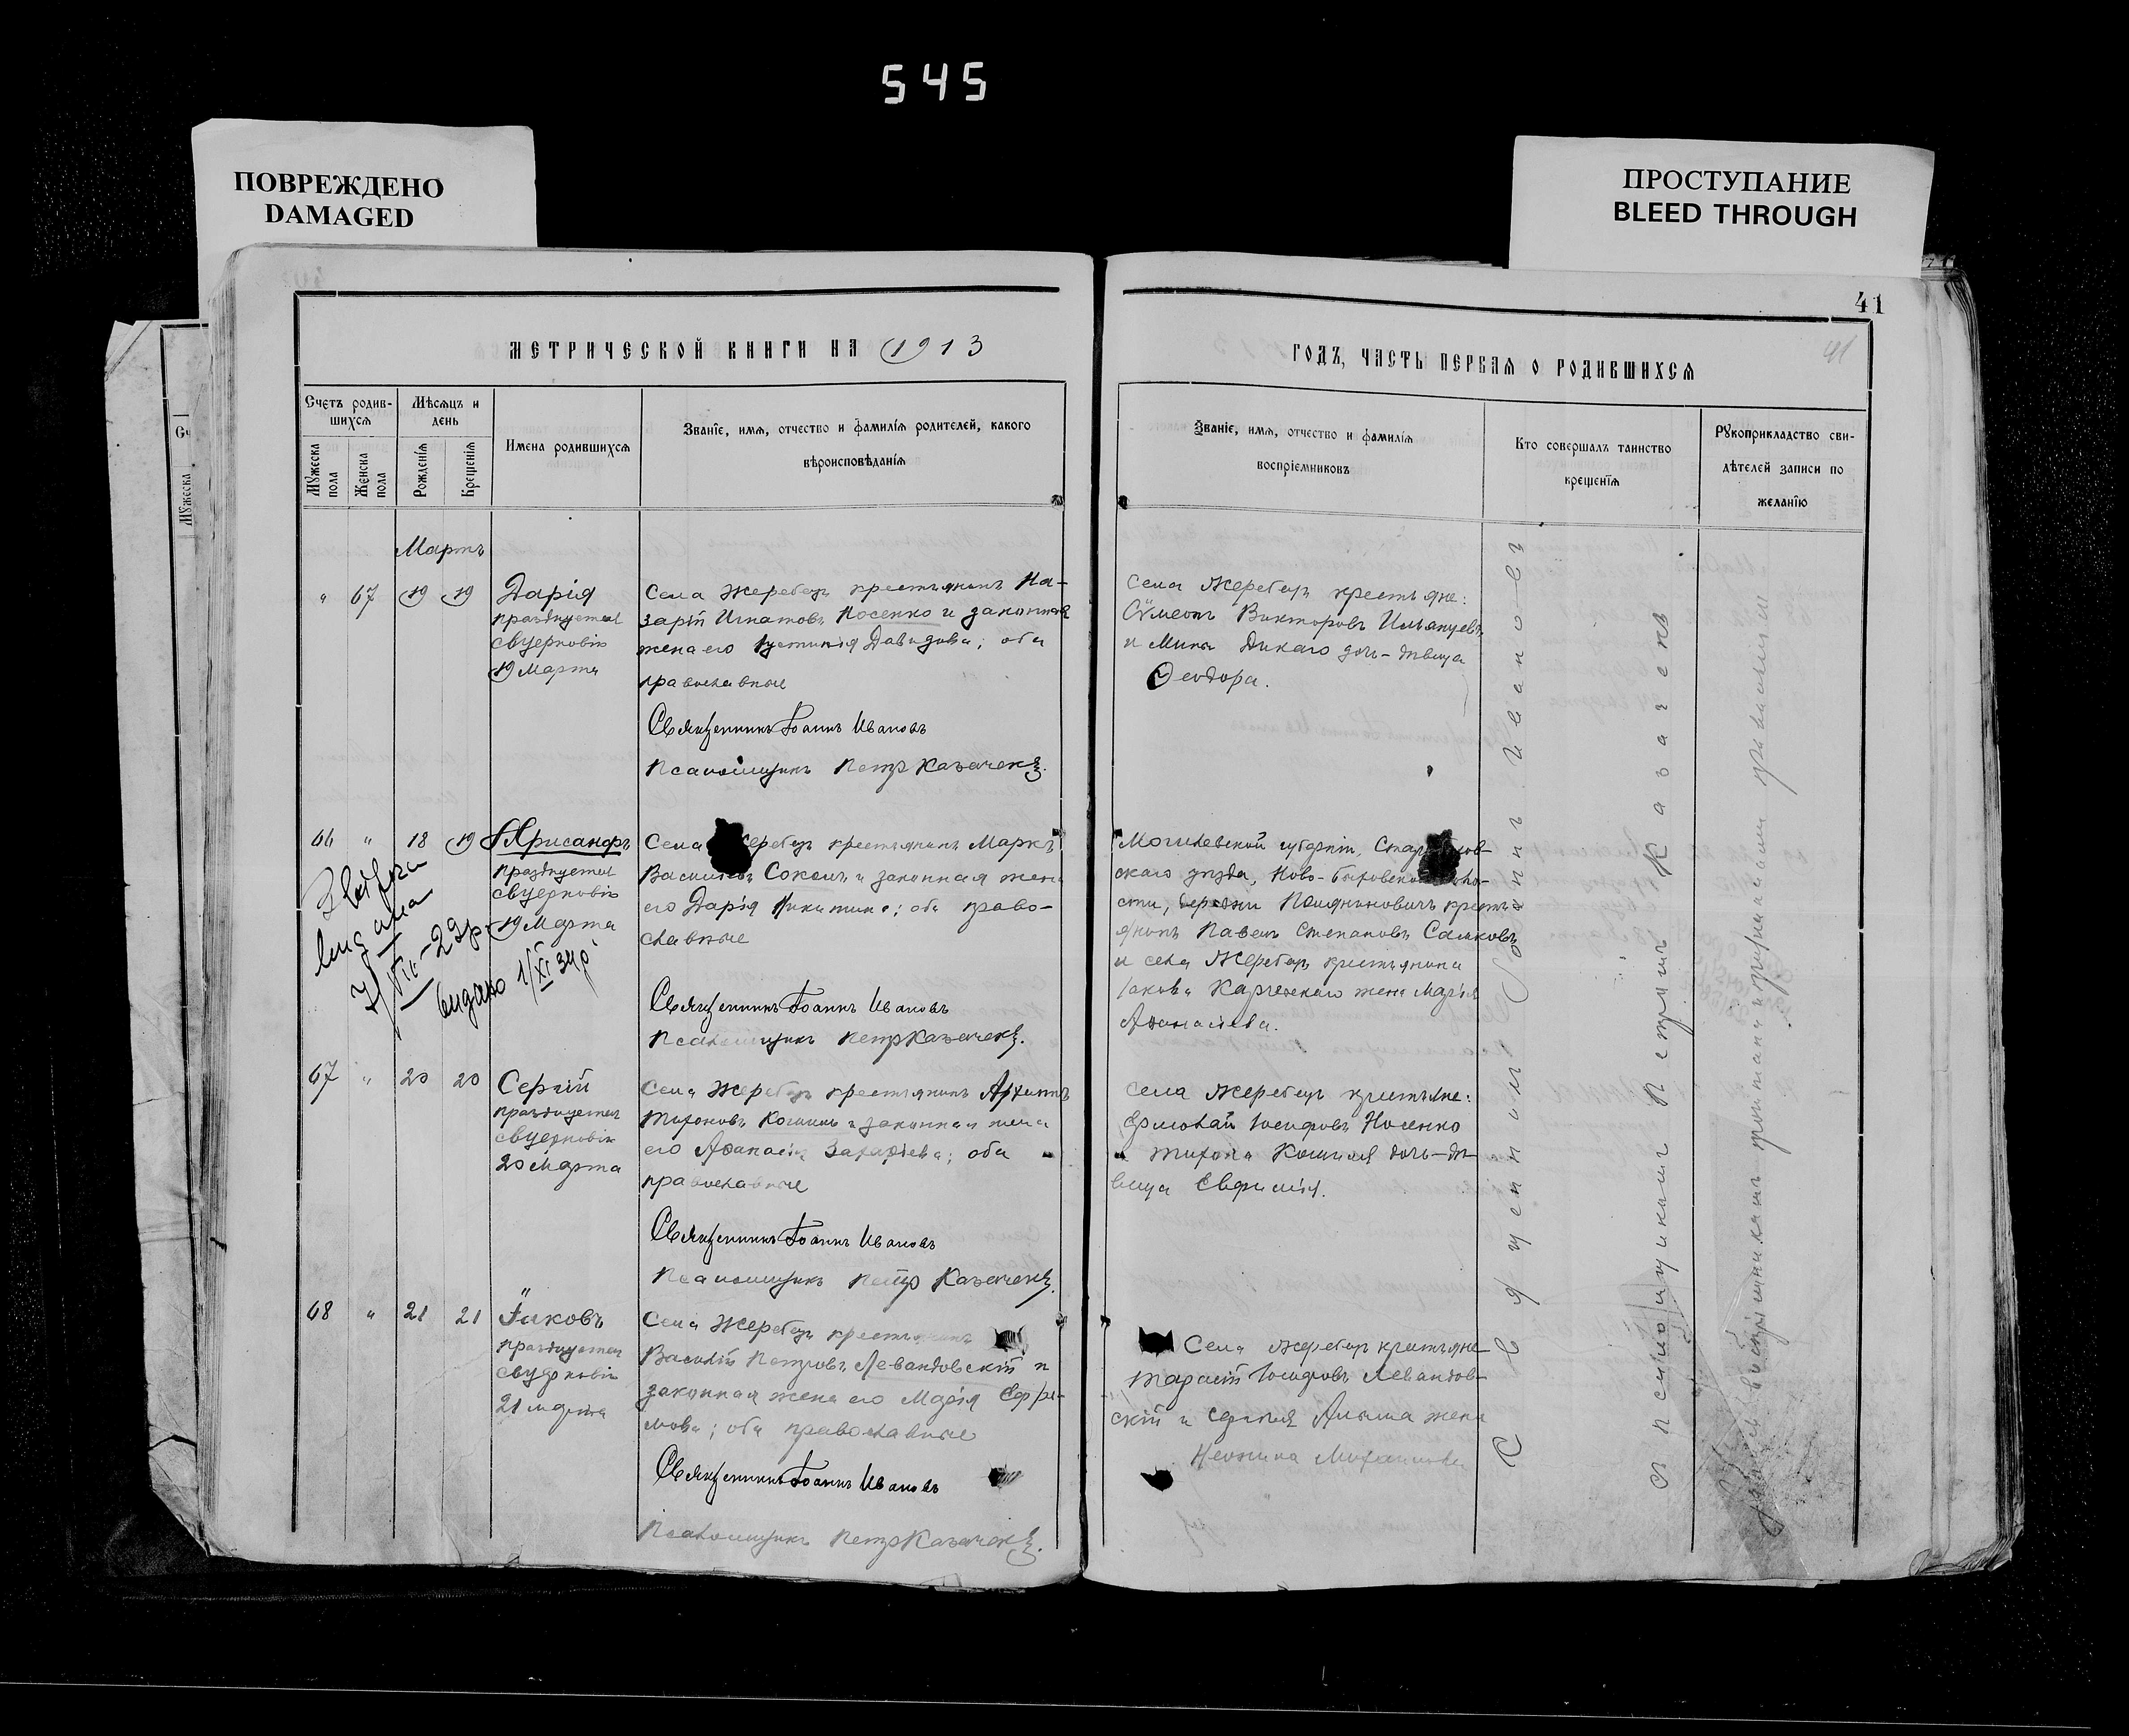 545
ПОВРЕЖДЕНО
DAMAGED
ПРОСТУПАНИЕ
BLEED THROUGH
41
41
МЕТРИЧЕСКОЙ КНИГИ НА 1913
ГОДЪ, ЧАСТЬ ПЕРВАЯ О РОДИВШИХСЯ
Счетъ родив-
шихся
Мужеска
пола
Женска
пола
Мѣсяцъ и
день
Рожденія
Крещенія
Имена родившихся
Званіе, имя, отчество и фамилія родителей, какого
вѣроисповѣданія
Званіе, имя, отчество и фамилія
воспріемниковъ
Кто совершалъ таинство
крещенія
Рукоприкладство сви-
дѣтелей записи по
желанію
Сч
Мужеска
Мартъ
" 67 19 19
Дарія
празднуемая
св. церковію
19 Марта
Села Жеребецъ крестьянинъ На-
зарій Игнатовъ Носенко и законная
жена его Іустинія Давидова; оба
православные
Священникъ Іоаннъ Ивановъ
Псаломщикъ Петръ Казаченко.
Села Жеребецъ крестьяне:
Сѵмеонъ Викторовъ
и Мины Дикаго дочь-дѣвица
Ѳеодора.
66 " 18 19
Хрисанфъ
празднуемый
св. церковію
19 Марта
7/VII-29р.
видано 1/XI 34р
Села Жеребецъ крестьянинъ Маркъ
Васильевъ Соколъ и законная жена
его Дарія Никитина; оба право-
славные
Священникъ Іоаннъ Ивановъ
Псаломщикъ Петръ Казаченко.
Могилевской губерніи,
скаго уѣзда, Ново-Быховской воло-
сти, крестья-
янинъ Павелъ Степановъ
и села Жеребецъ крестьянина
Іакова жена Марія
Аѳанасіева.
67 " 20 20
Сергій
празднуемый
св. церковію
20 Марта
Села Жеребецъ крестьянинъ
Тихоновъ и законная жена
его Аѳанасія Захаріева; оба
православные
Священникъ Іоаннъ Ивановъ
Псаломщикъ Петръ Казаченко.
Села Жеребецъ крестьяне:
Ермолай Іосифовъ Носенко
и Тихона дочь-дѣ-
вица Евфимія.
68 " 21 21
Іаковъ
празднуемый
св. церковію
21 марта
Села Жеребецъ крестьянинъ
Василій Петровъ Левандовскій и
законная жена его Марія Ефи-
мова; оба православные
Священникъ Іоаннъ Ивановъ
Псаломщикъ Петръ Казаченко.
Села Жеребецъ крестьяне
Тарасій Іосифовъ Левандов-
скій и жена
Неонила Михайлова
Священникъ Іоаннъ Ивановъ
съ псаломщикомъ Петромъ Казаченко